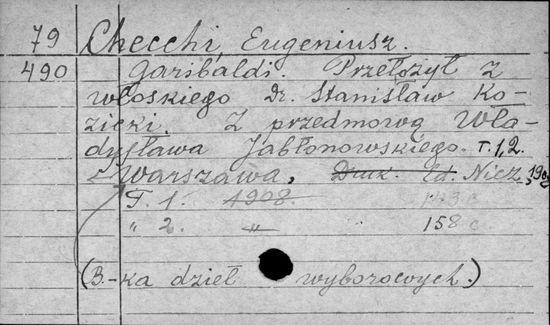 79 Checchi, Eugeniusz.
490 Garibaldi. Przełożył z
włoskiego Dr. Stanisław Ko-
zicki. Z przedmową Wła-
dysława Jabłonowskiego. T. 1, 2.
Warszawa, Druk. Ed. Nicz, 190
T. 1. 1908. 143 c.
" 2. " 158 c.
(B.-ka dzieł wyborowych.)